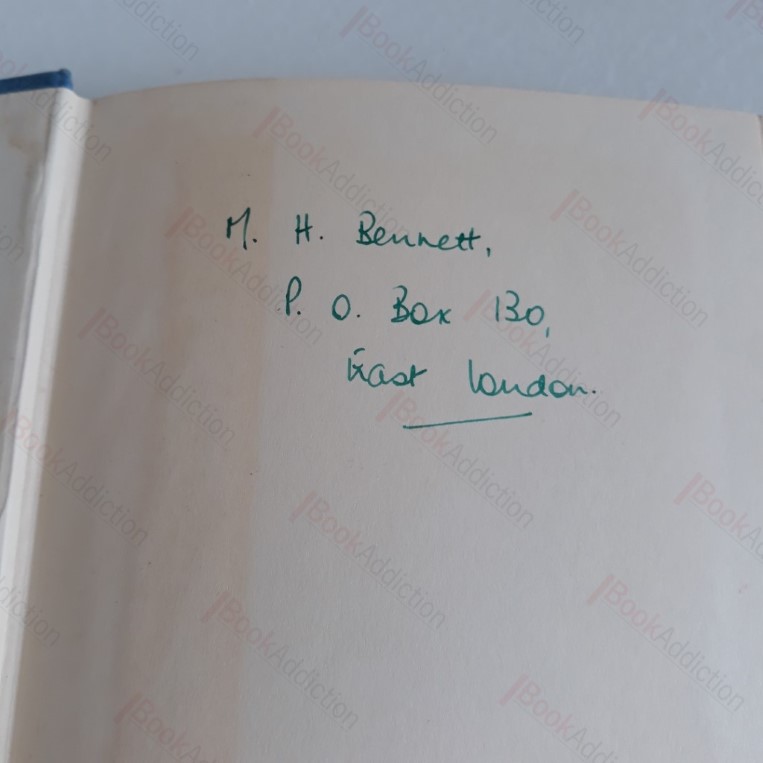 M. H. Bennett,
P. O. Box 130,
East London.
BookAddiction